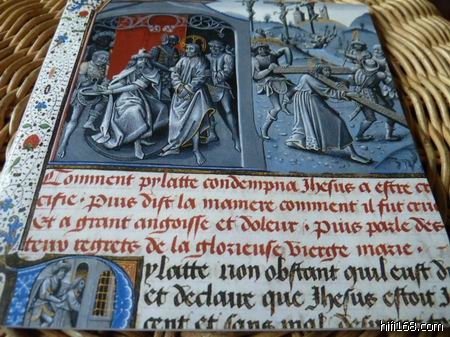 Comment pylatte condempna Jhesus a estre cru
cifie · Puis dist la maniere comment il fut cruc
et a grant angoisse et doleur · Puis parle des
teux regrets de la glorieuse vierge marie ·
Pylatte non obstant quil eust d
et declaire que Jhesus estoit J
cent et sans mal
hifi168.com